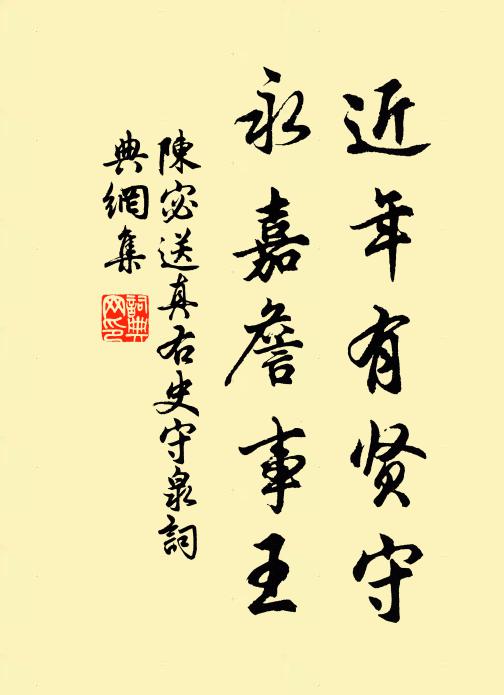 近年有贤守
永嘉詹事王
陳宓送真右史守泉詞
典網集
詞典網印